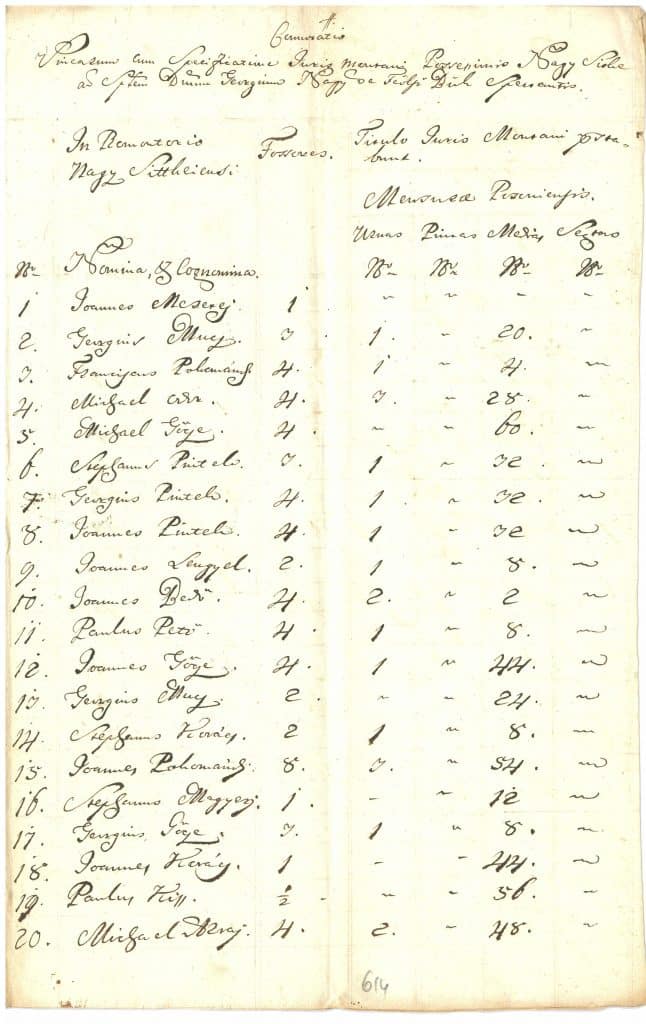 Connotatio
Vinearum cum Specificatione Juris montani Possessionis Nagy Sitke
ad Sptem Dnum Georgium Nagy de Felső Bük Spectantis.
In Promontorio Fossores. Titulo Juris Montani psta-
Nagy Sittkeiensi bunt.
Mensurae Posoniensis.
Urnas Pintas Medias Seytas
Nr. Nomina, & Cognomina. Nr. Nr. Nr. Nr.
1 Joannes Meszej 1 " " " "
2. Georgius 3 1. " 20. "
3. Franciscus 4. 1 " 4. "
4. Michael 4. 3. " 28. "
5. Michael Göje. 4 " " 60. "
6. Stephanus Pintch. 3. 1 " 32. "
7. Georgius Pintch. 4. 1 " 32. "
8. Joannes Pintch. 4 1 " 32 "
9. Joannes Lengyel. 2. 1 " 8. "
10. Joannes Bedő. 4 2. " 2 "
11. Paulus Pető. 4 1 " 8. "
12. Joannes Göje. 4. 1 " 44. "
13. Georgius 2 " " 24. "
14. Stephanus Kovács. 2 1 " 8. "
15. Joannes 8. 3. " 54. "
16. Stephanus Megyesj. 1. - " 12 "
17. Georgius Göje. 3. 1 " 8. "
18. Joannes Kovács. 1 - " 44. "
19. Paulus Kiss. 1/2 " " 56. "
20. Michael 4. 2. " 48. "
614